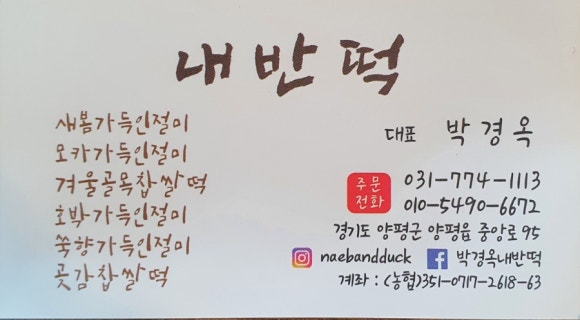 내반떡
새봄가득인절미
모카가득인절미
겨울골목찹쌀떡
호박가득인절미
쑥향가득인절미
곶감찹쌀떡
대표 박경옥
주문전화 031-774-1113
010-5490-6672
경기도 양평군 양평읍 중앙로 95
naebandduck 박경옥내반떡
계좌 : (농협)351-0717-2618-63